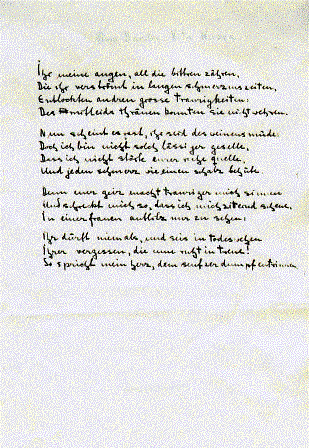 Ihr meine augen, all die bittren zähren,
Die ihr verströmt in langen schmerzenszeiten,
Entlockten andren grosse traurigkeiten:
Des mitleids thränen konnten sie nicht wehren.
Nun scheint es fast, ihr seid des weinens müde.
Doch ich bin nicht solch lässiger geselle,
Dass ich nicht stärke eurer ruhe quelle,
Und jeden schmerz wie einen schatz behüte.
Denn euer geiz macht trauriger mich sinnen
Und schreckt mich so, dass ich mich zitternd scheue,
In einer frauen antlitz nur zu sehen.
Ihr dürft niemals, und seis in todeswehen
Ihrer vergessen, die nun ruht in
So spricht mein herz, dem seufzer dumpf entrinnen